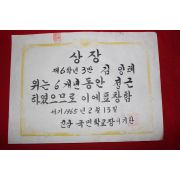 상장
제6학년 3반 김
위는 6개년동안 정근
하였으므로 이에표창함
서기 1965년 2월 13일
국민학교장